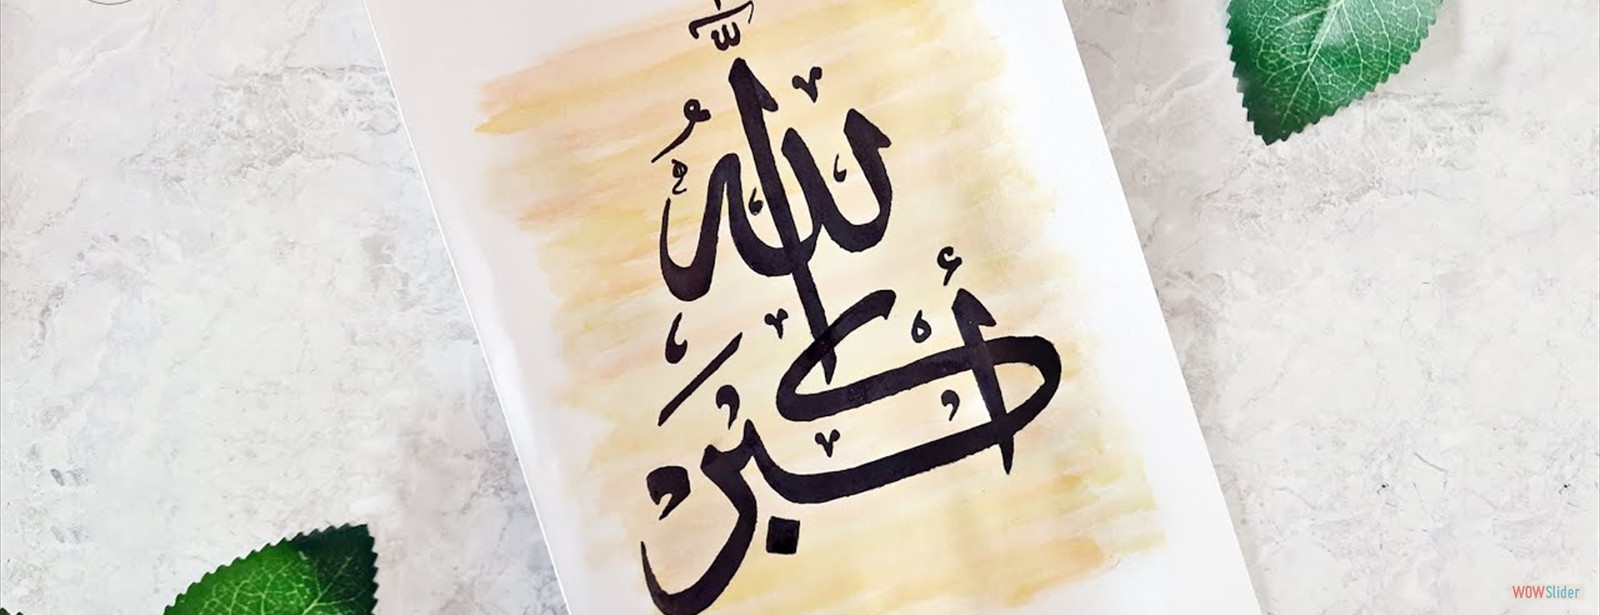 الله
أكبر
WOWSlider